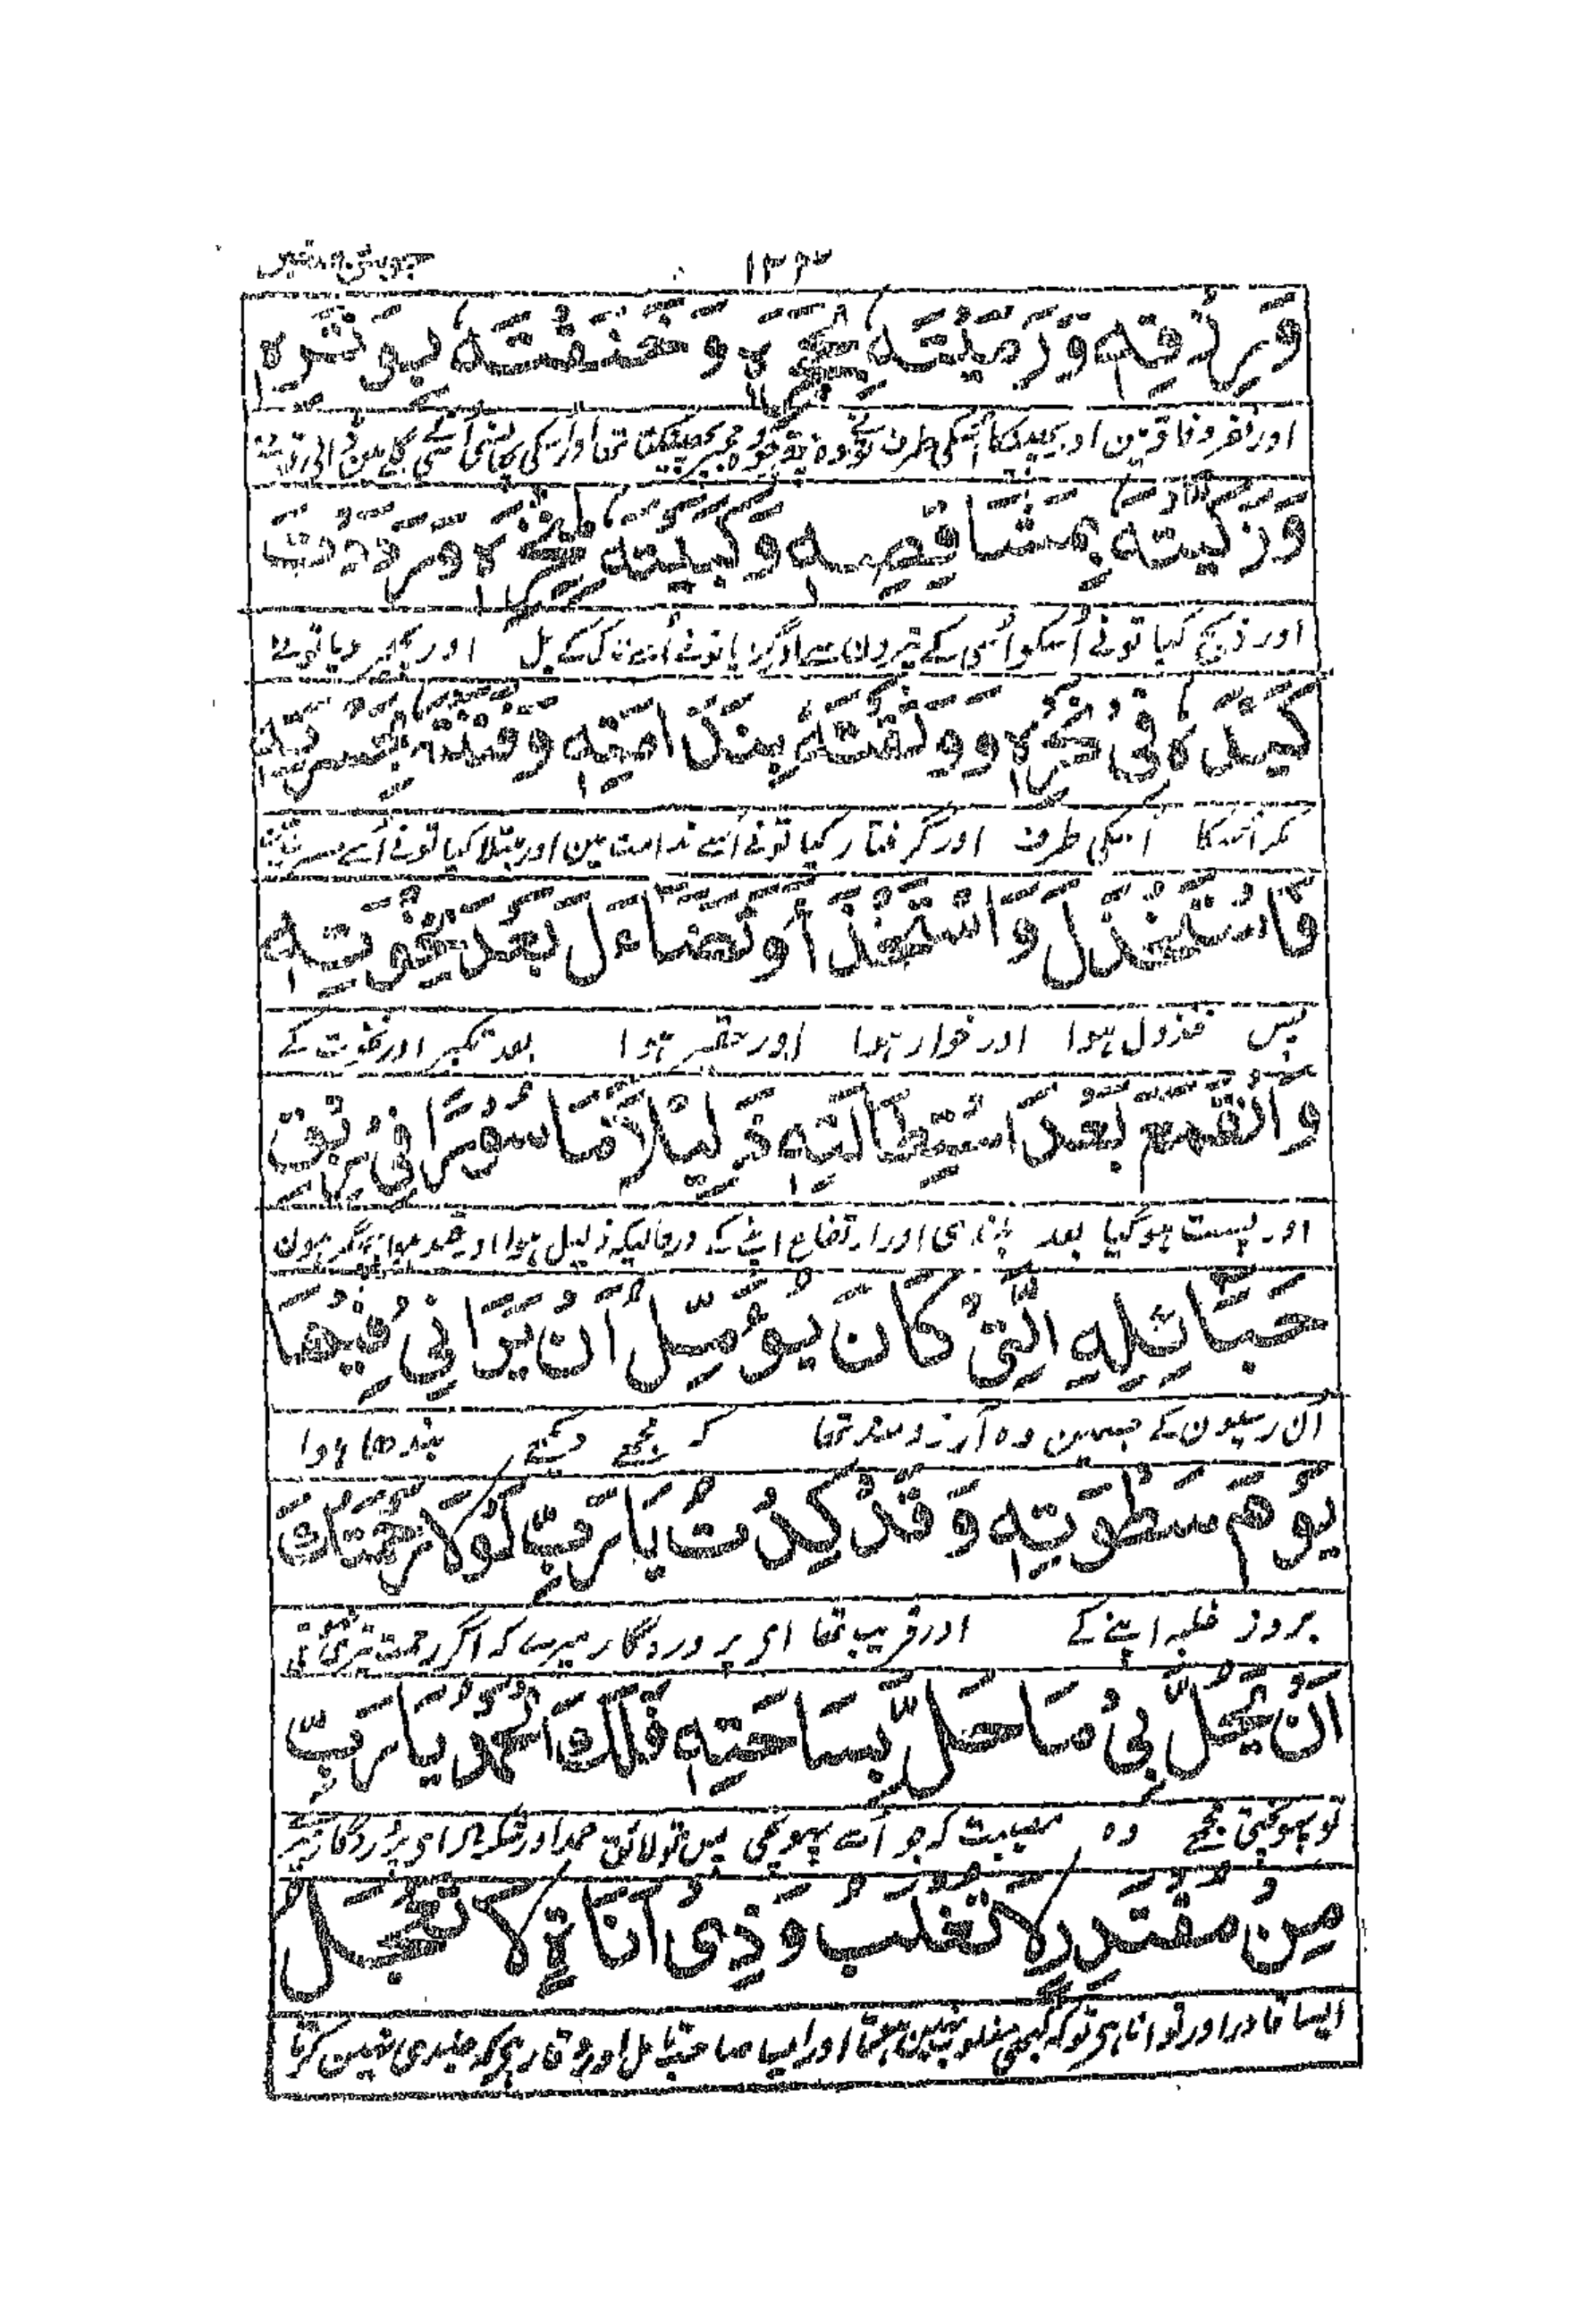 ۱۳۲
وَرِزْقِهِ وَرَمَيْتَهُ بِحَجَرِهِ وَخَنَقْتَهُ بِوَتَرِهِ
اور فقر وفاقہ مین اور پھینکا اُسکی طرف تونے وہ پتھر جو وہ مجھپر پھینکتا تھا اور اسکی پھانسی اُسی کے گلے مین ڈالی تونے
وَذَكَّيْتَهُ بِمَشَاقِصِهِ وَكَبَبْتَهُ لِمَنْخَرِهِ وَرَدَدْتَ
اور ذبح کیا تونے اُسکو اُسی کے تیرون سے اور گرایا تونے اُسے ناک کے بل اور پھیر دیا تونے
كَيْدَهُ فِي نَحْرِهِ وَوَثَقْتَهُ بِنَدَامَتِهِ وَفَتَنْتَهُ بِحَسْرَتِهِ
مکر اُسکا اُسکی طرف اور گرفتار کیا تونے اُسے ندامت مین اور مبتلا کیا تونے اُسے حسرت مین
فَاسْتَخْذَلَ وَاسْتَخْذَأَ وَتَضَاءَلَ بَعْدَ نَخْوَتِهِ
پس مخذول ہوا اور خوار ہوا اور حقیر ہوا بعد تکبر اور نخوت کے
وَانْقَمَعَ بَعْدَ اسْتِطَالَتِهِ ذَلِيلًا مَأْسُورًا فِي رِبَقِ
اور پست ہوگیا بعد بلندی اور ارتفاع اپنے کے درحالیکہ ذلیل ہوا اور قید ہوا بیچ گرہون
حَبَائِلِهِ الَّتِي كَانَ يُؤَمِّلُ أَنْ يَرَانِي فِيهَا
اُن رسیون کے جسمین وہ آرزومند تھا کہ مجھے دیکھے بندھا ہوا
يَوْمَ سَطْوَتِهِ وَقَدْ كِدْتُ يَا رَبِّ لَوْلَا رَحْمَتُكَ
بروز غلبہ اپنے کے اور قریب تھا ای پروردگار میرے کہ اگر رحمت تیری نہوتی
أَنْ يَحُلَّ بِي مَا حَلَّ بِسَاحَتِهِ فَلَكَ الْحَمْدُ يَا رَبِّ
تو پہونچتی مجھے وہ مصیبت کہ جو اُسے پہونچی پس تو لائق حمد اور شکر ہی ای پروردگار میرے
مِنْ مُقْتَدِرٍ لَا تُغْلَبُ وَذِي أَنَاةٍ لَا تَعْجَلُ
ایسا قادر اور توانا ہی تو کہ کبھی مغلوب نہین ہوتا اور ایسا صاحب تامل اور وقار ہی کہ جلدی نہین کرتا